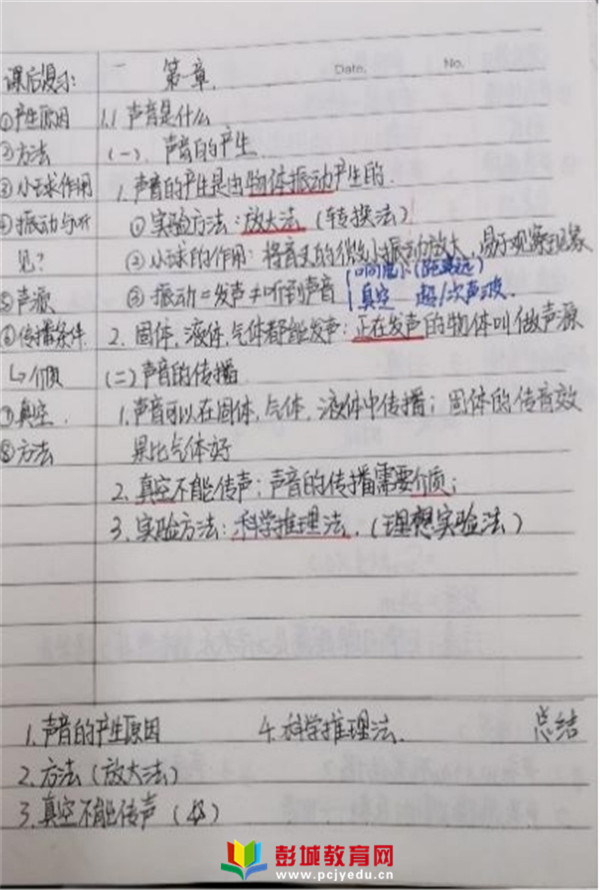 第一章
Date.
No.
课后提示:
①产生原因
②方法
③小球作用
④振动与听
见?
⑤声源
⑥传播条件
↳介质
⑦真空
⑧方法
1.1 声音是什么
(一)、声音的产生
1.声音的产生是由物体振动产生的.
①实验方法:放大法(转换法)
②小球的作用:将音叉的微小振动放大,易于观察现象
③振动=发声≠听到声音
响度小(距离远)
真空 超/次声波.
2.固体,液体,气体都能发声:正在发声的物体叫做声源
(二)声音的传播
1.声音可以在固体,气体,液体中传播;固体的传音效
果比气体好
2.真空不能传声;声音的传播需要介质;
3.实验方法:科学推理法.(理想实验法)
1.声音的产生原因
4.科学推理法.
总结
2.方法(放大法)
3.真空不能传声
彭城教育网
www.pcjyedu.cn